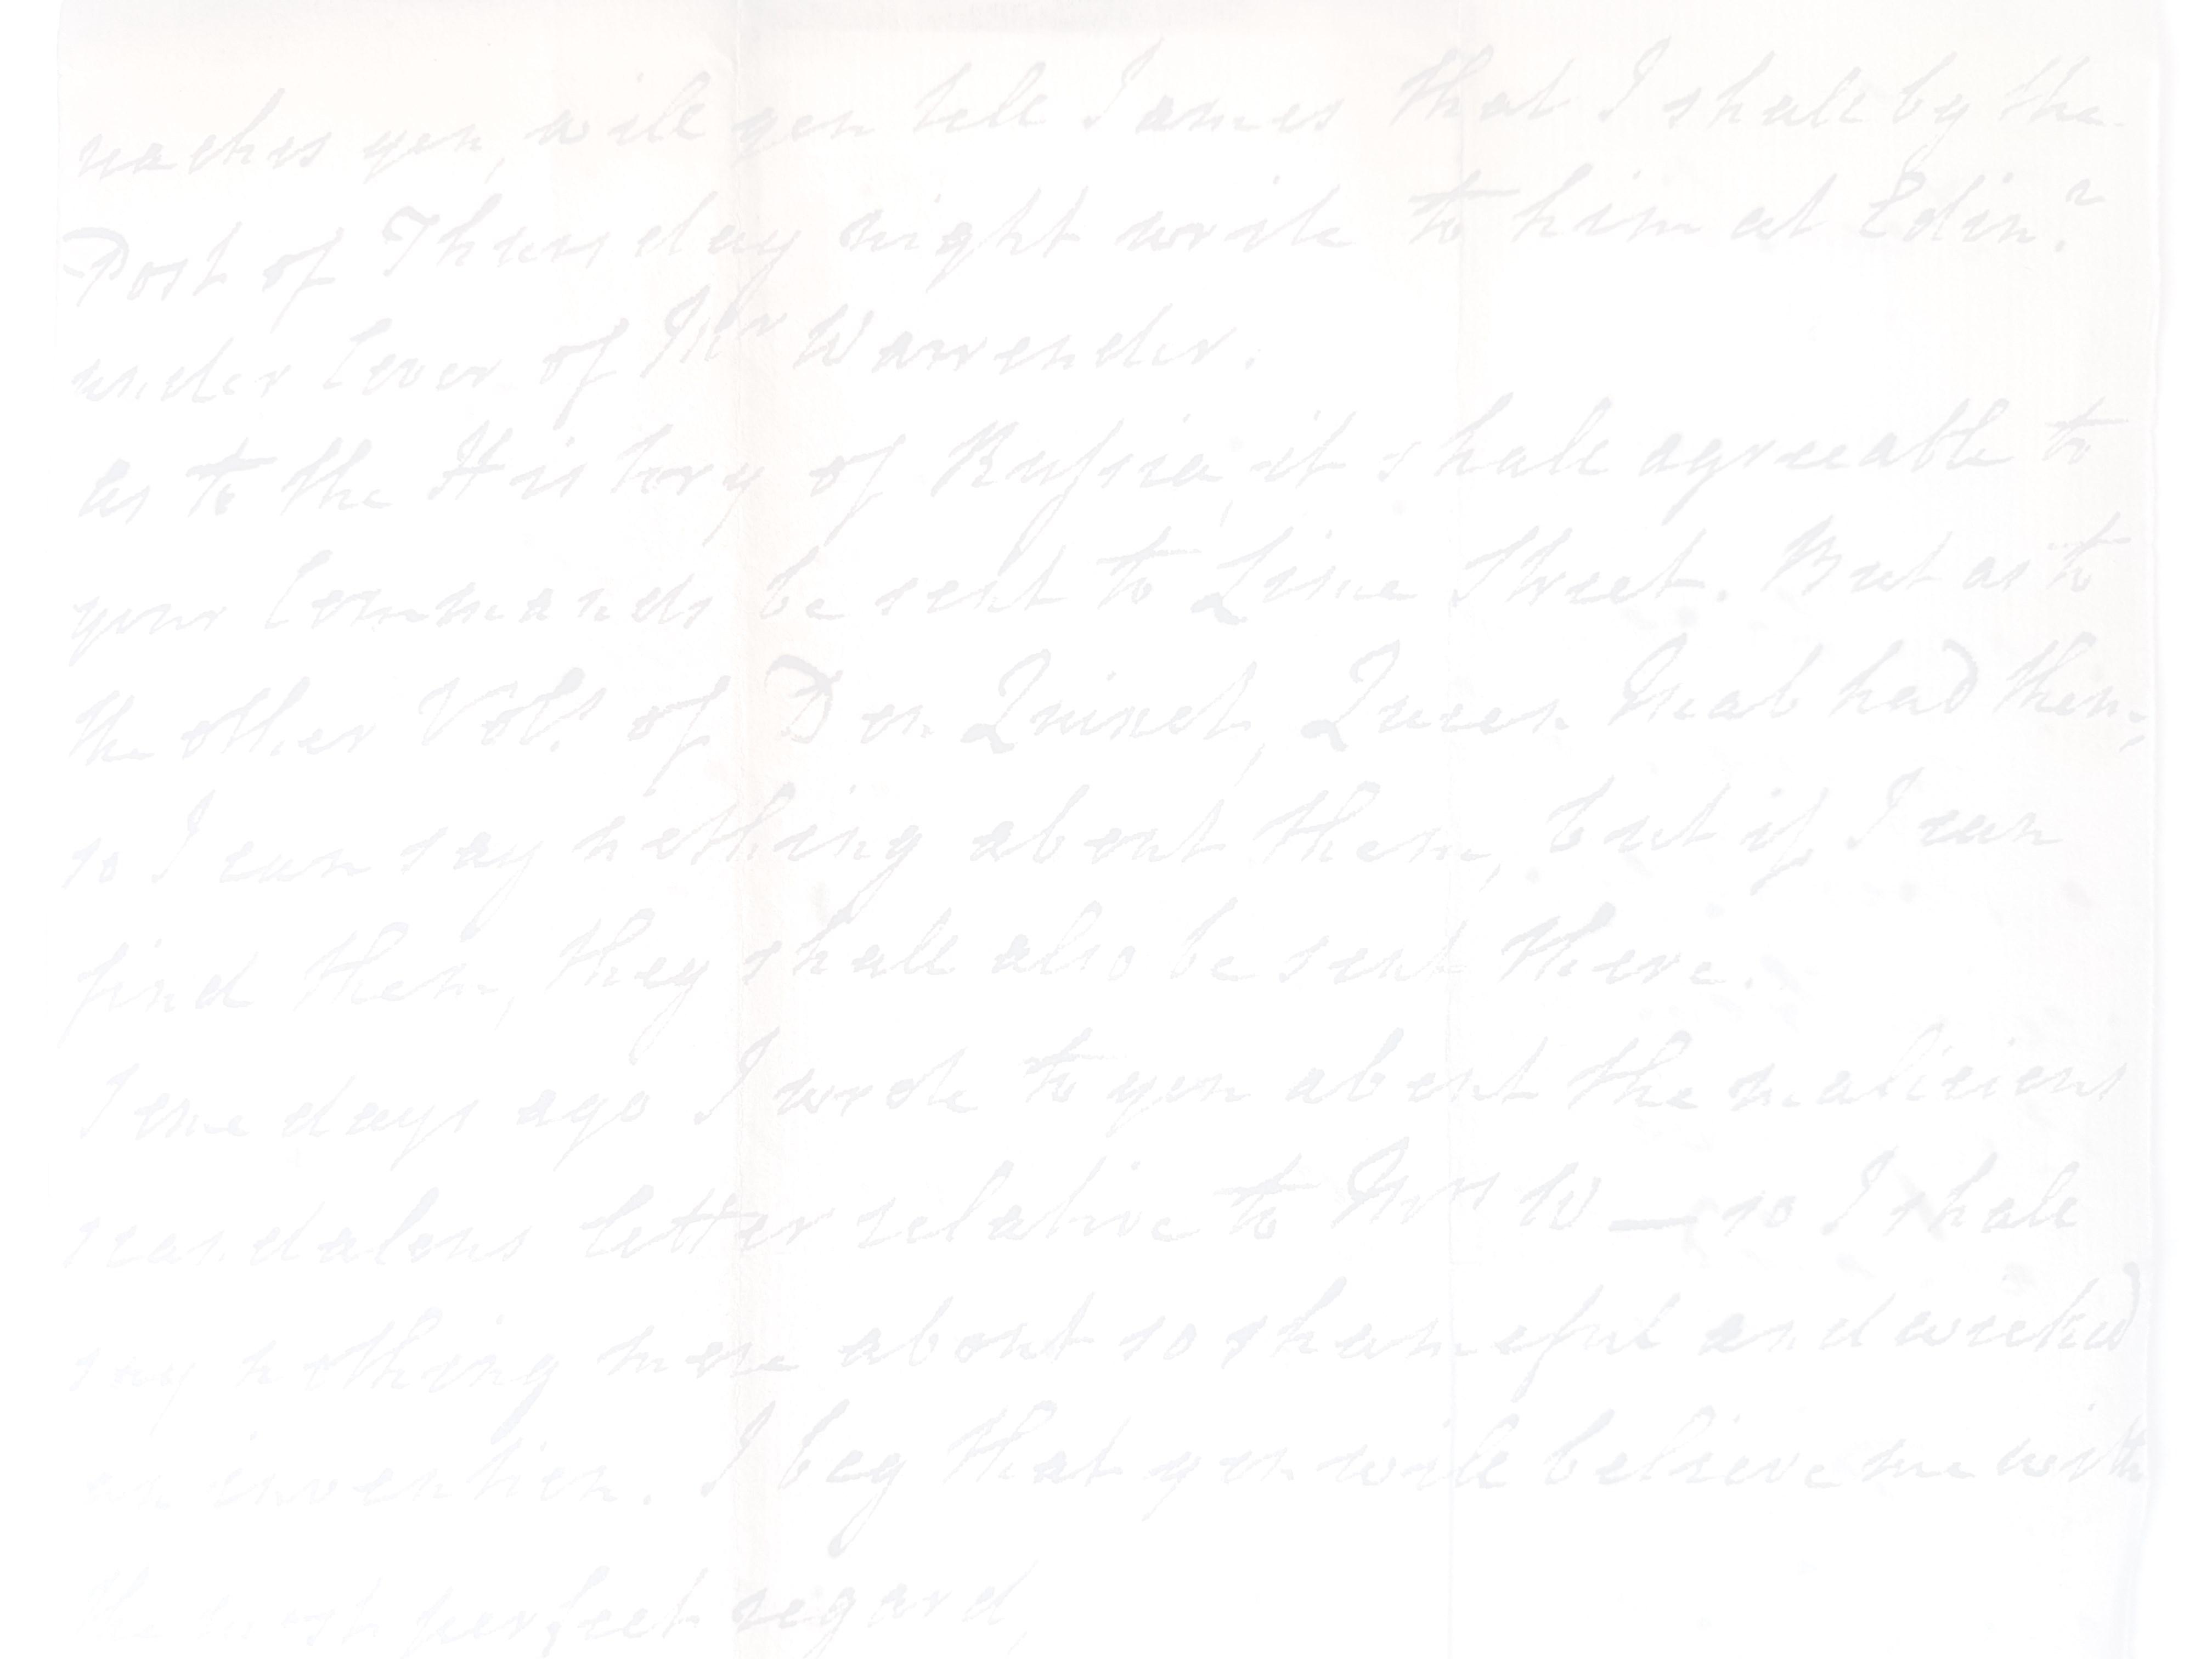 reaches you, will you tell James that I shall by the
Post of Thursday night write to him at Edinr.
under Cover of Mr Warrender.
As to the History of Russia, it shall agreeable to
your Commands be sent to Lime Street. But as to
the other Vols. of Don Quixot, Queen Mab had them,
so I can say nothing about them, but if I can
find them, they shall also be sent there.
Some days ago I wrote to you about the malicious
scandalous letter relative to Mrs W— so I shall
say nothing more about so shameful and wicked
an invention. I beg that you will believe me with
the most perfect regard,